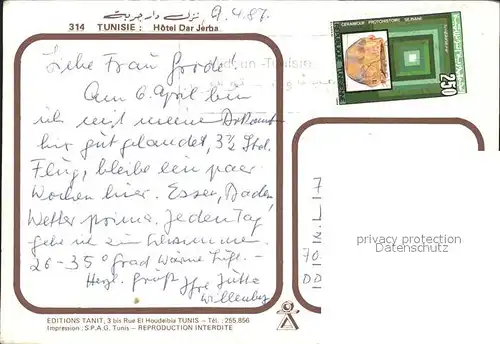 نزل دار جربة
9.4.87.
314 TUNISIE : Hôtel Dar Jerba
CERAMIQUE PROTOHISTOIRE SEJNANE
250
Liebe Frau Grode!
Am 6. April bin
ich mit meine
hier gut gelandet, 3½ Std.
Flug, bleibe ein paar
Wochen hier. Essen, Baden
Wetter prima. Jeden Tag
gehe ich zum Schwimmen.
26-35° Grad Wärme
Herzl. Grüße Ihre Jutta
Willenberg
privacy protection
Datenschutz
EDITIONS TANIT, 3 bis Rue El Houdeibia TUNIS - Tél. : 255.856
Impression : S.P.A.G. Tunis - REPRODUCTION INTERDITE